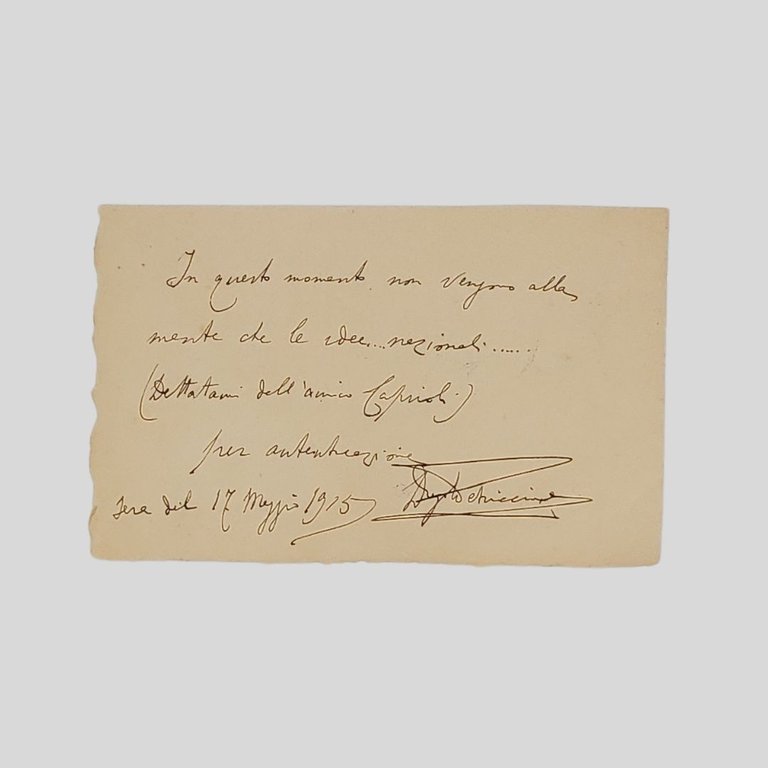 In questo momento non vengono alla
mente che le idee....nazionali......
(Dettatami dell'amico Caprioli)
per autenticazione
sera del 17 Maggio 1915